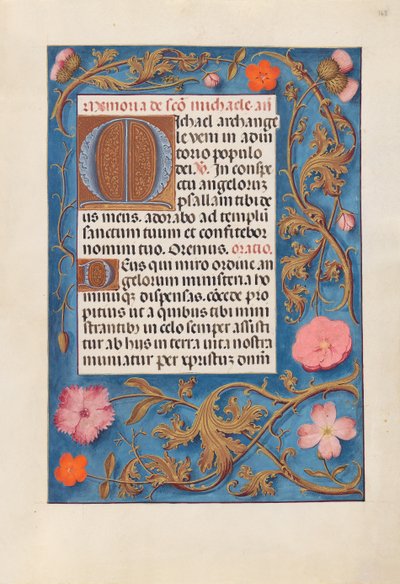 168
Memoria de sco michaele an
Michael archange
le veni in adiu
torio populo
dei. V. In conspe
ctu angelorum
psallam tibi de
us meus. adorabo ad templum
sanctum tuum et confitebor
nomini tuo. Oremus. oratio.
Deus qui miro ordine an
gelorum ministeria ho
minumque dispensas. cocede pro
pitius ut a quibus tibi mini
strantibus in celo semper assisti
tur ab hiis in terra vita nostra
muniatur per xpristum dnm